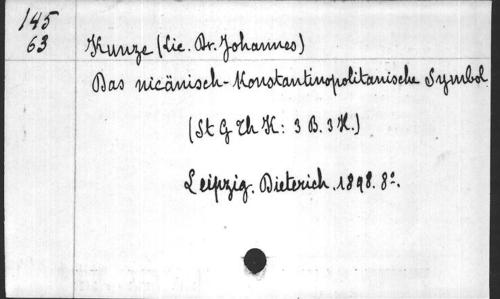 145
63
Kunze (Lic. Dr. Johannes)
Das nicänisch-Konstantinopolitanische Symbol.
(St G Th K: 3 B. 3 H.)
Leipzig. Dieterich. 1898. 8°.